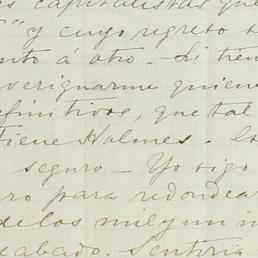 s capitalistas que
" y cuyo regreso s
nto á otro. Si tien
verignarme quiene
efinitivos, que tal
tiene Holmes. Es
seguro - Yo sigo
ro para redondea
de los mil y un in
acabado. Sentiria